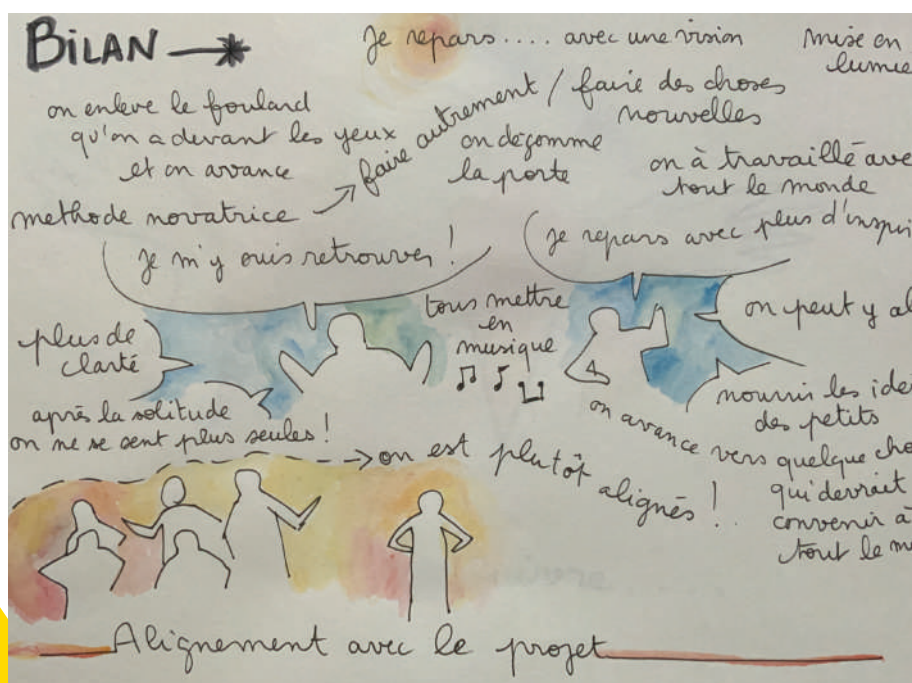 BILAN
Je repars.... avec une vision
mise en
lumie
on enlève le foulard
qu'on a devant les yeux
et on avance
faire autrement / faire des choses
nouvelles
on dégomme
la porte
on à travaillé ave
tout le monde
methode novatrice
Je m'y suis retrouver !
Je repars avec plus d'inspir
plus de
clarté
tous mettre
en
musique
on peut y al
après la solitude
on ne se sent plus seules !
nourrir les idé
des petits
on avance vers quelque cho
qui devrait
convenir à
tout le m
on est plutôt alignés !
Alignement avec le projet